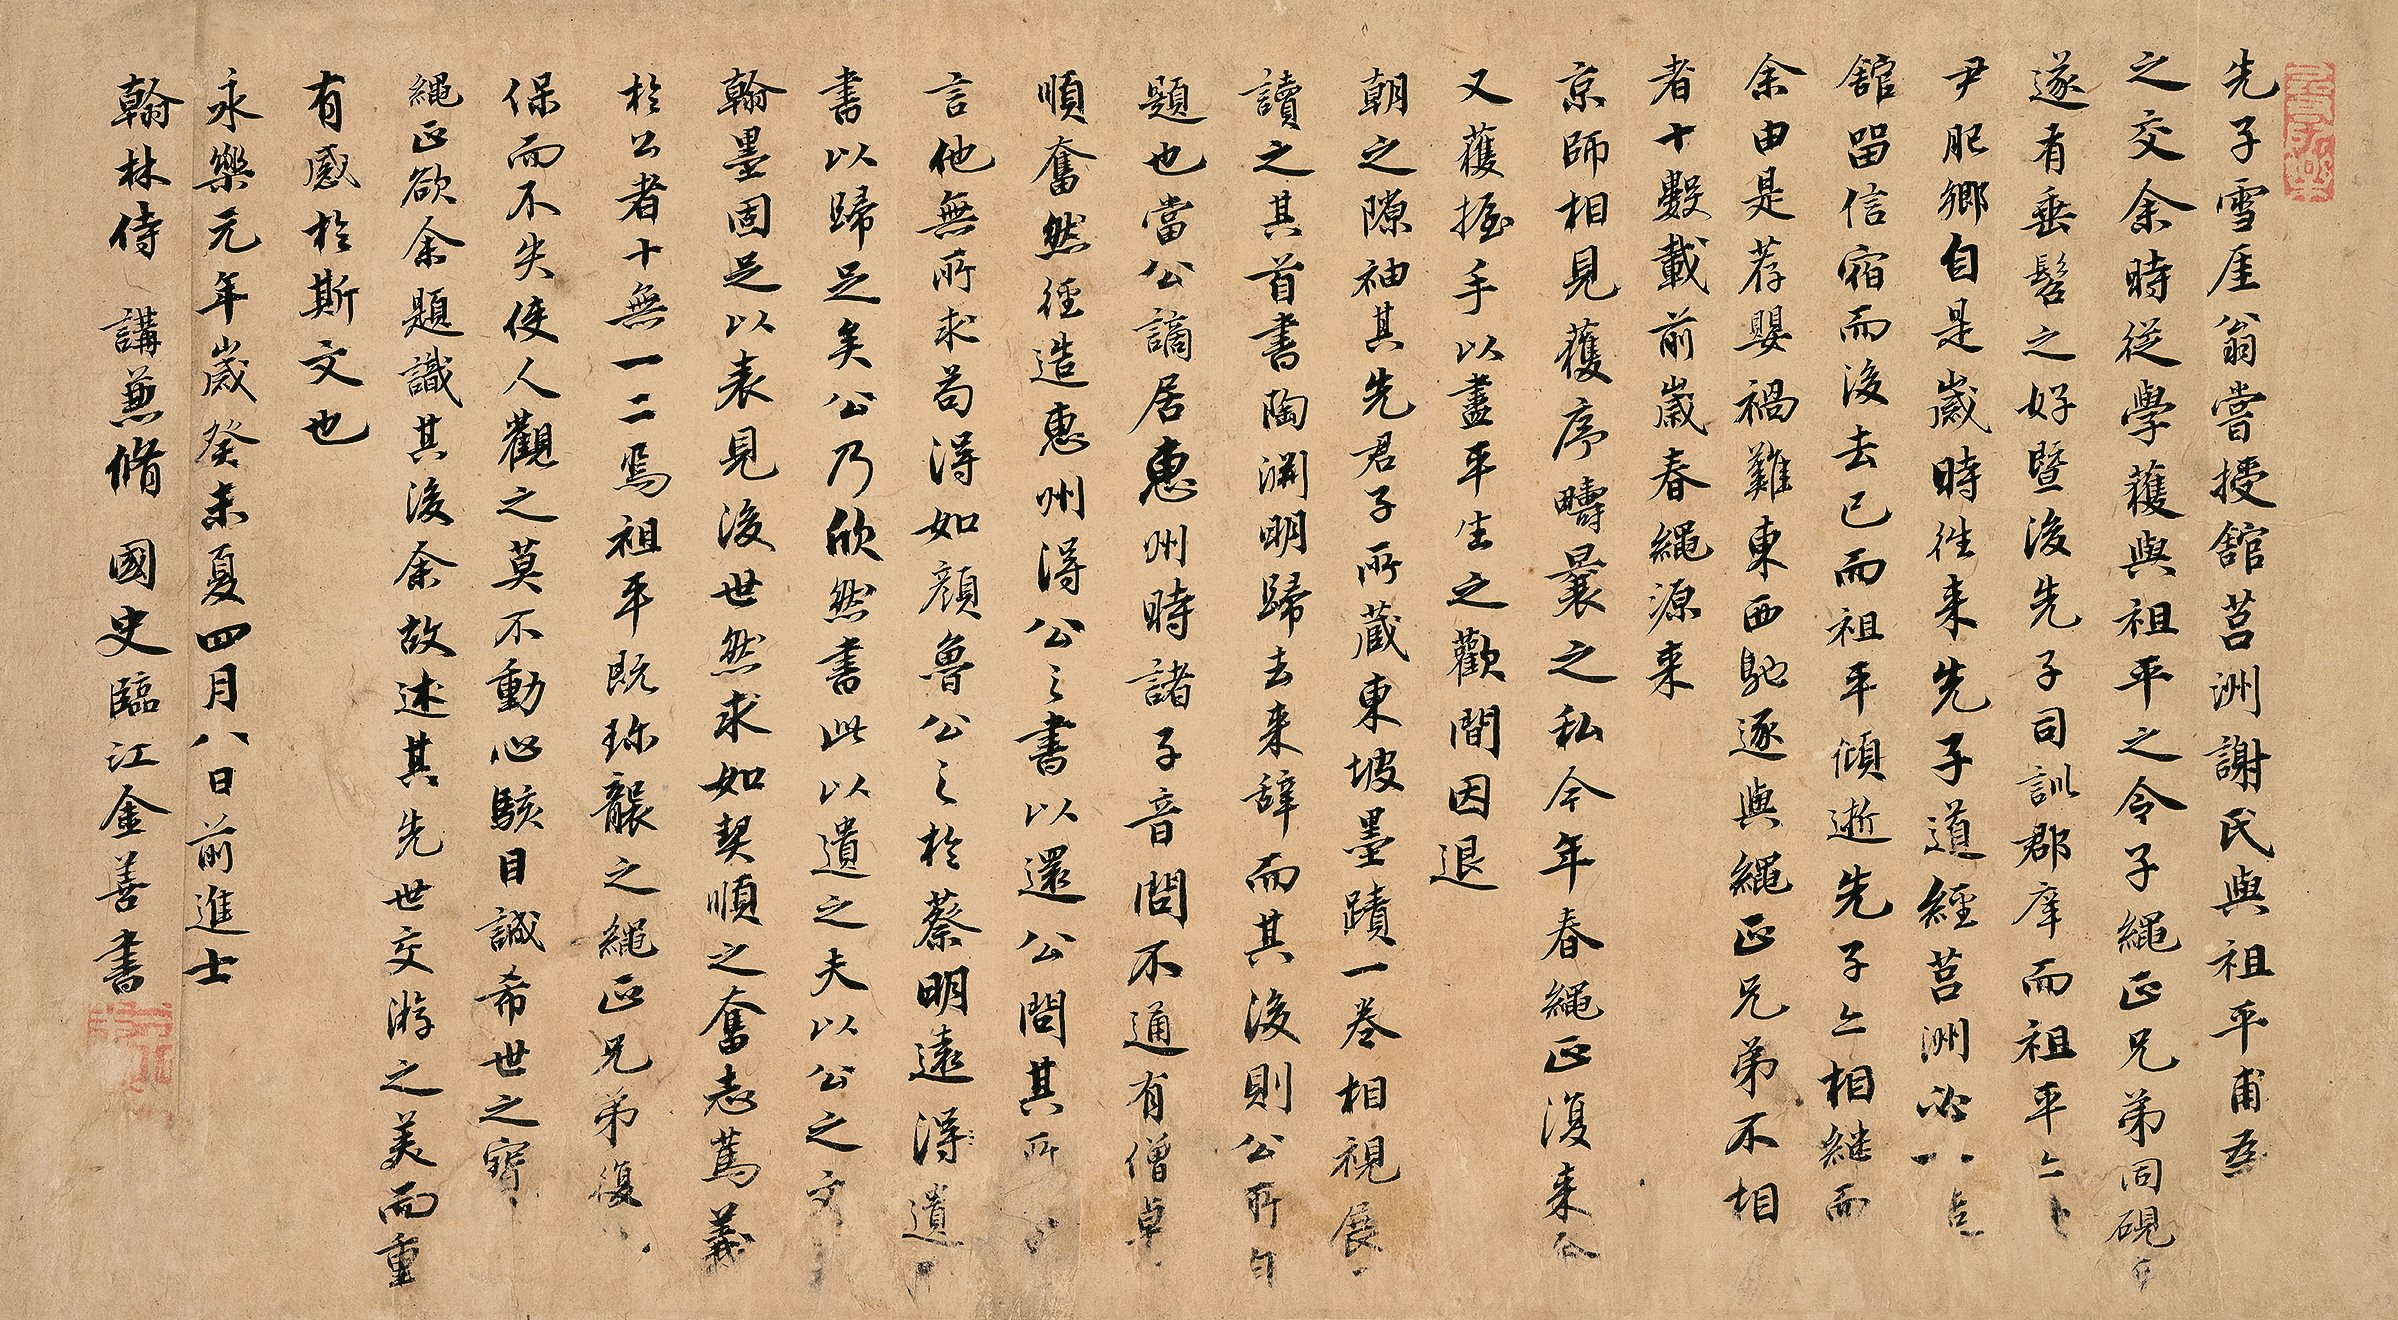 先子雪厓翁嘗授舘莒洲謝氏與祖平甫爲
之交余時從學獲與祖平之令子繩正兄弟同硯
遂有垂髫之好暨後先子司訓郡庠而祖平亡
尹肥鄉自是歲時往来先子道經莒洲必一
舘留信宿而後去已而祖平傾逝先子亡相継而
余由是荐嬰禍難東西馳逐與繩正兄弟不相
者十數載前歲春繩源来
京師相見獲序疇曩之私今年春繩正復来
又獲握手以盡平生之歡間因退
朝之隙袖其先君子所蔵東坡墨蹟一卷相視展
讀之其首書陶淵明歸去来辞而其後則公所自
題也當公謫居惠州時諸子音問不通有僧卓
順奮然徑造惠州得公之書以還公問其所
言他無所求苟得如顔魯公之於蔡明遠得遺
書以歸足矣公乃欣然書此以遺之夫以公之文
翰墨固足以表見後世然求如契順之奮志篤義
於公者十無一二焉祖平既珎襲之繩正兄弟復
保而不失使人觀之莫不動心駭目誠希世之寳
繩正欲余題識其後余故述其先世交游之美而重
有感於斯文也
永樂元年歲癸未夏四月八日前進士
翰林侍講兼脩國史臨江金善書